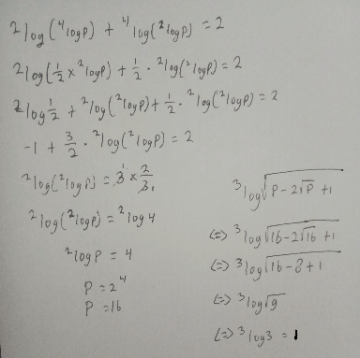 ²log(⁴logP) + ⁴log(²logP) = 2
²log(½ x ²logP) + ½ · ²log(²logP) = 2
²log ½ + ²log(²logP) + ½ · ²log(²logP) = 2
-1 + 3/2 · ²log(²logP) = 2
²log(²logP) = 3 x 2/3
²log(²logP) = ²log 4
²logP = 4
P = 2⁴
P = 16
³log√(P - 2√P + 1)
(=) ³log√(16 - 2√16 + 1)
(=) ³log√(16 - 8 + 1)
(=) ³log√9
(=) ³log 3 = 1